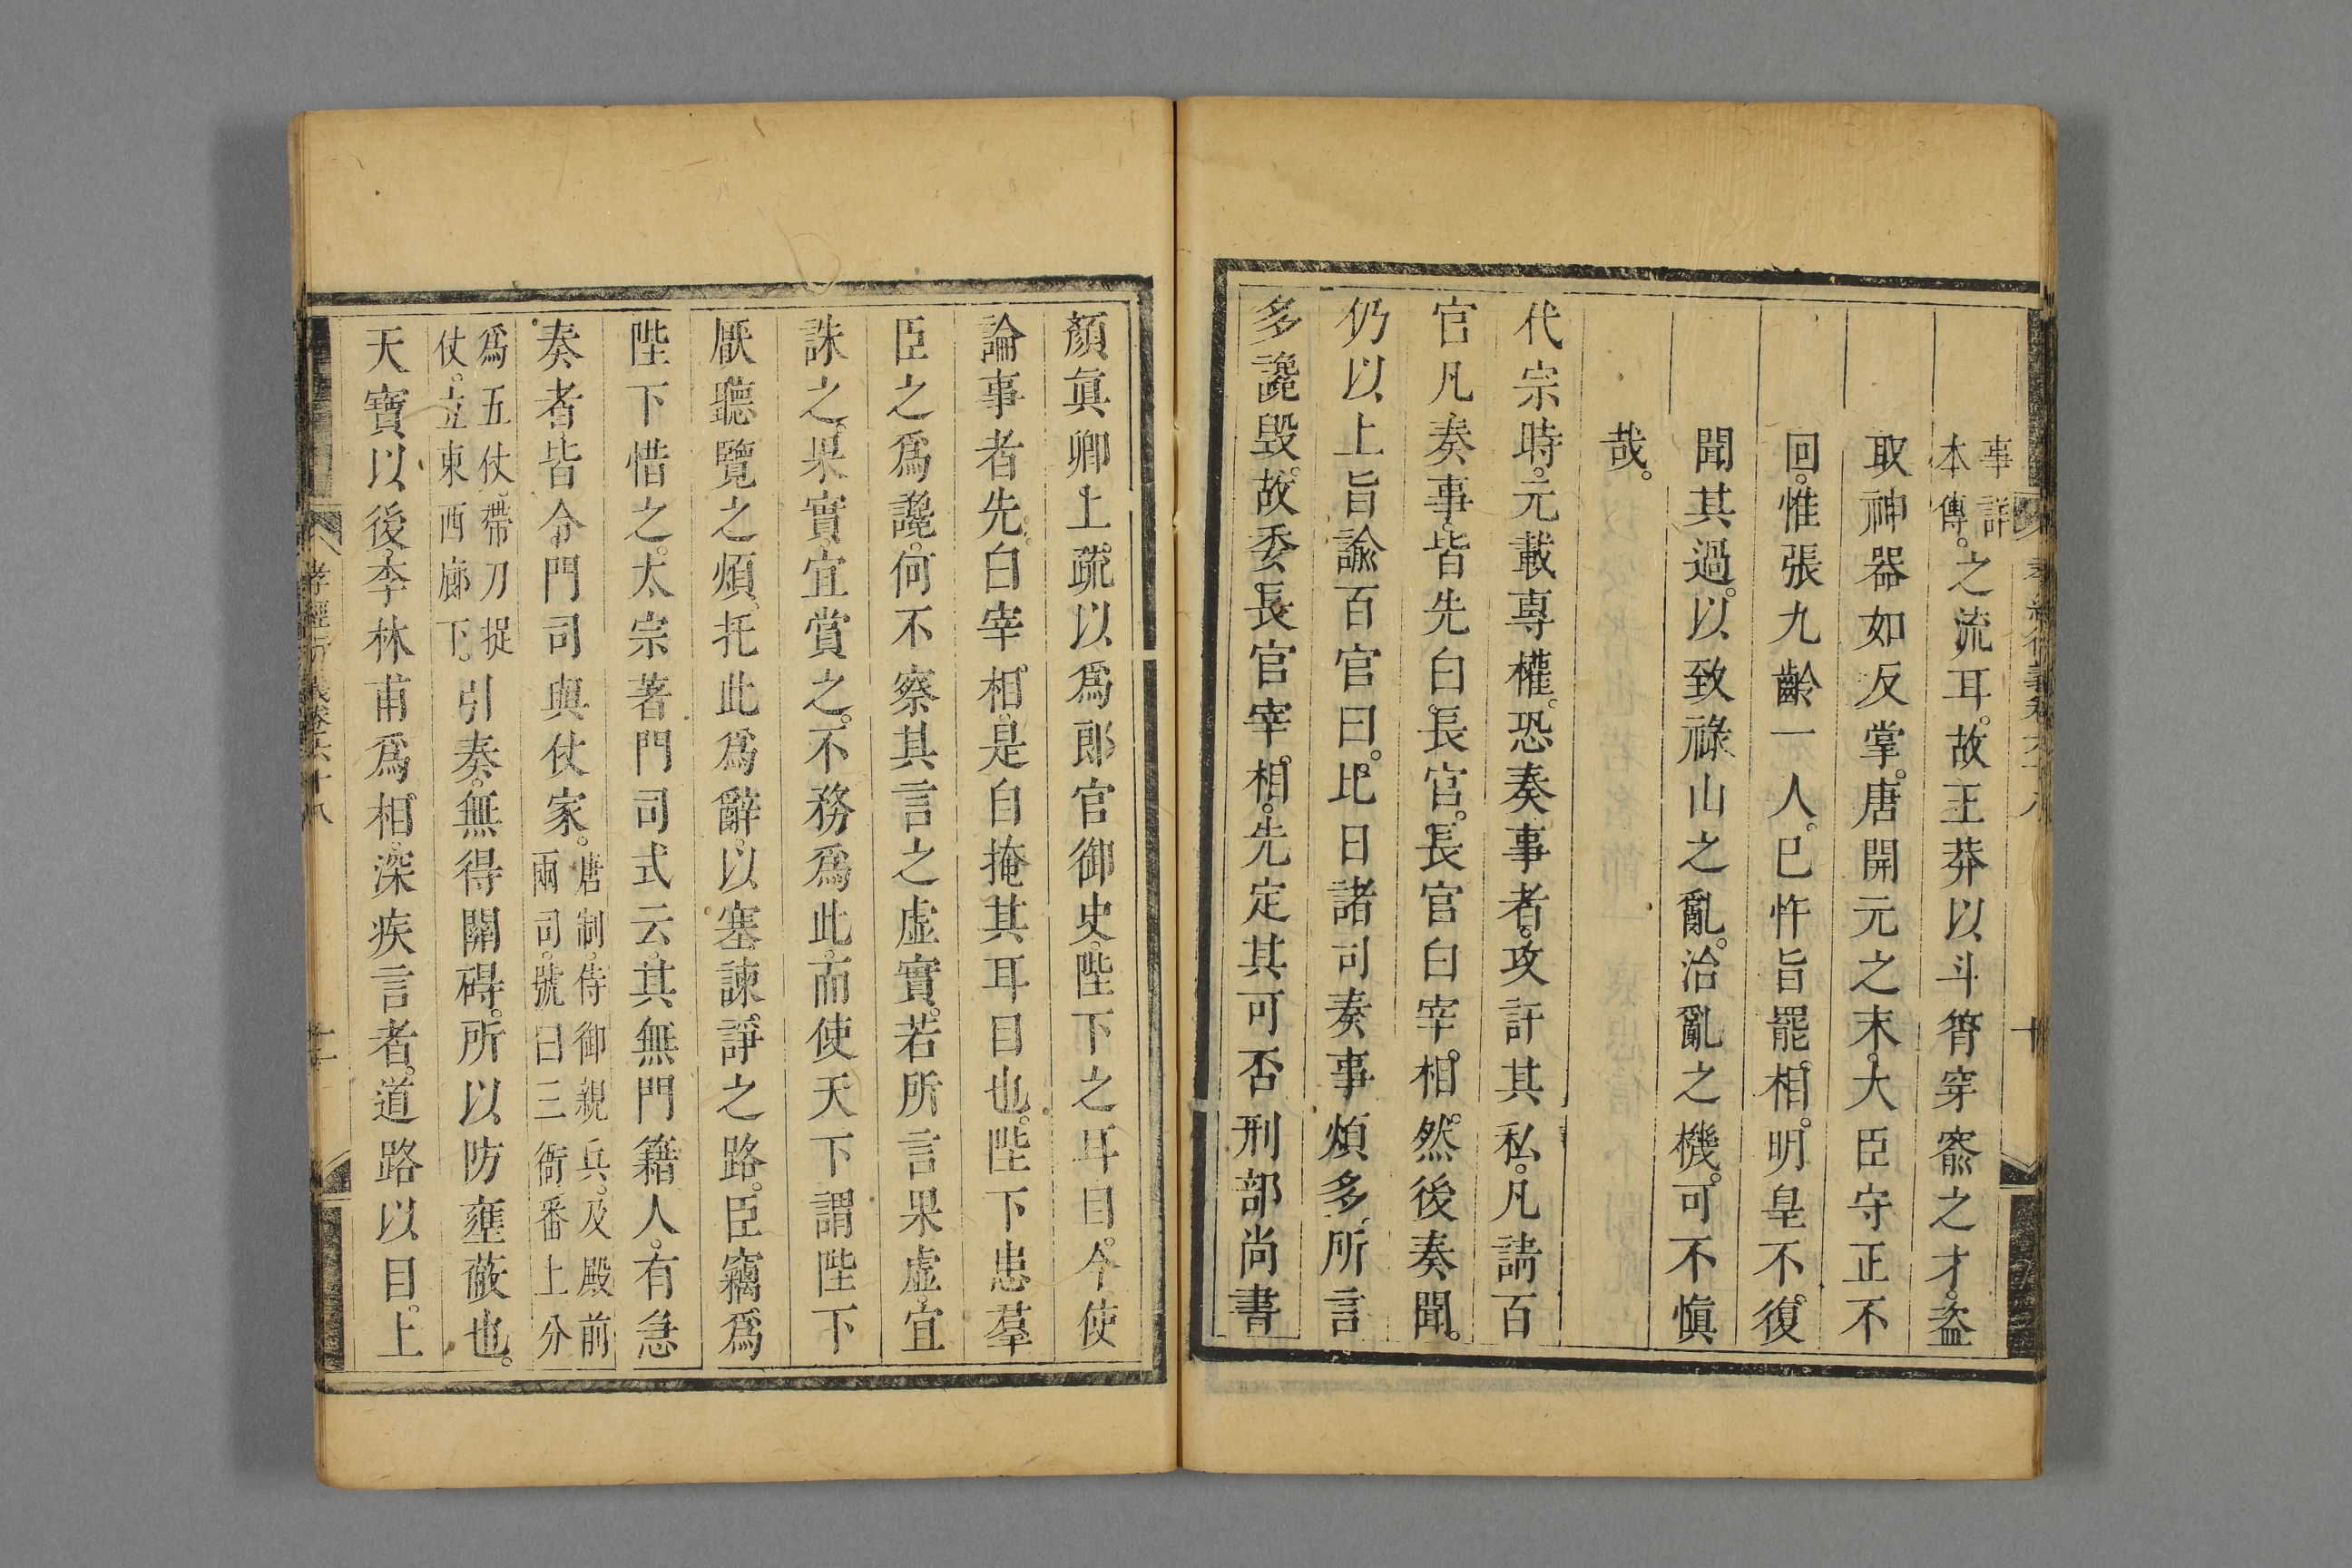 事詳
本傳。之流耳。故王莽以斗筲穿窬之才。盜
取神器如反掌。唐開元之末。大臣守正不
回。惟張九齡一人。已忤旨罷相。明皇不復
聞其過。以致祿山之亂。治亂之機。可不愼
哉。
代宗時。元載專權。恐奏事者。攻訐其私。凡請百
官凡奏事。皆先白長官。長官白宰相。然後奏聞。
仍以上旨諭百官曰。比日諸司奏事煩多。所言
多讒毀。故委長官宰相。先定其可否。刑部尚書
顏眞卿上疏。以爲郎官御史。陛下之耳目。今使
論事者先白宰相。是自掩其耳目也。陛下患羣
臣之爲讒。何不察其言之虛實。若所言果虛。宜
誅之。果實。宜賞之。不務爲此。而使天下謂陛下
厭聽覽之煩。托此爲辭。以塞諫諍之路。臣竊爲
陛下惜之。太宗著門司式云。其無門籍人。有急
奏者。皆令門司與仗家。唐制。侍御親兵。及殿前
兩司。號曰三衙番上分
爲五仗。帶刀捉
仗。立東西廊下。引奏。無得關碍。所以防壅蔽也。
天寶以後。李林甫爲相。深疾言者。道路以目。上
孝經衍義卷六十八
十
孝經衍義卷六十八
十一